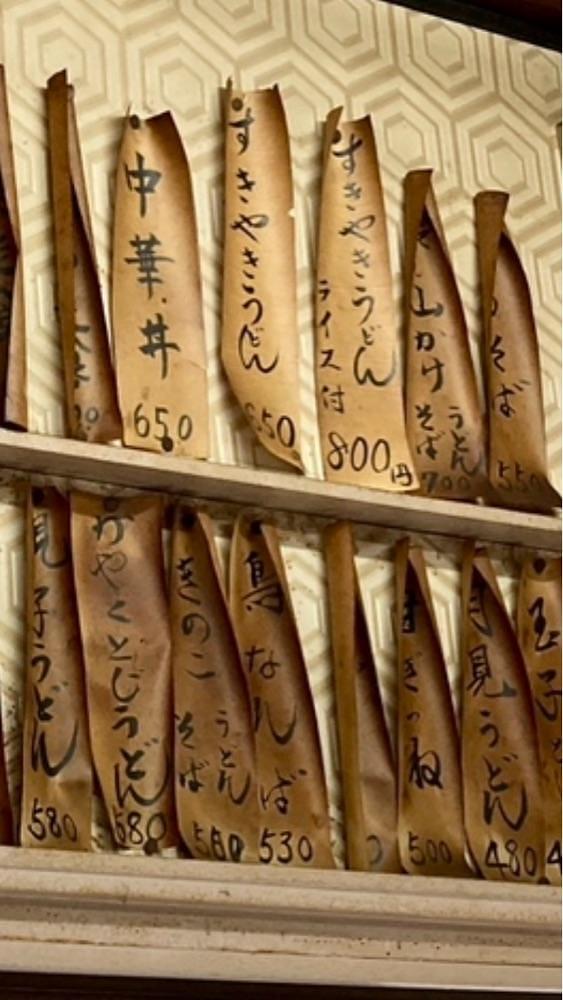 中華丼
650
すきやきうどん
650
すきやきうどん
ライス付
800円
山かけ
うどん
そば
700
そば
550
見
子うどん
580
かやくとじうどん
580
きのこ
うどん
そば
580
鳥なんば
530
きつね
500
月見うどん
480
玉子と
4